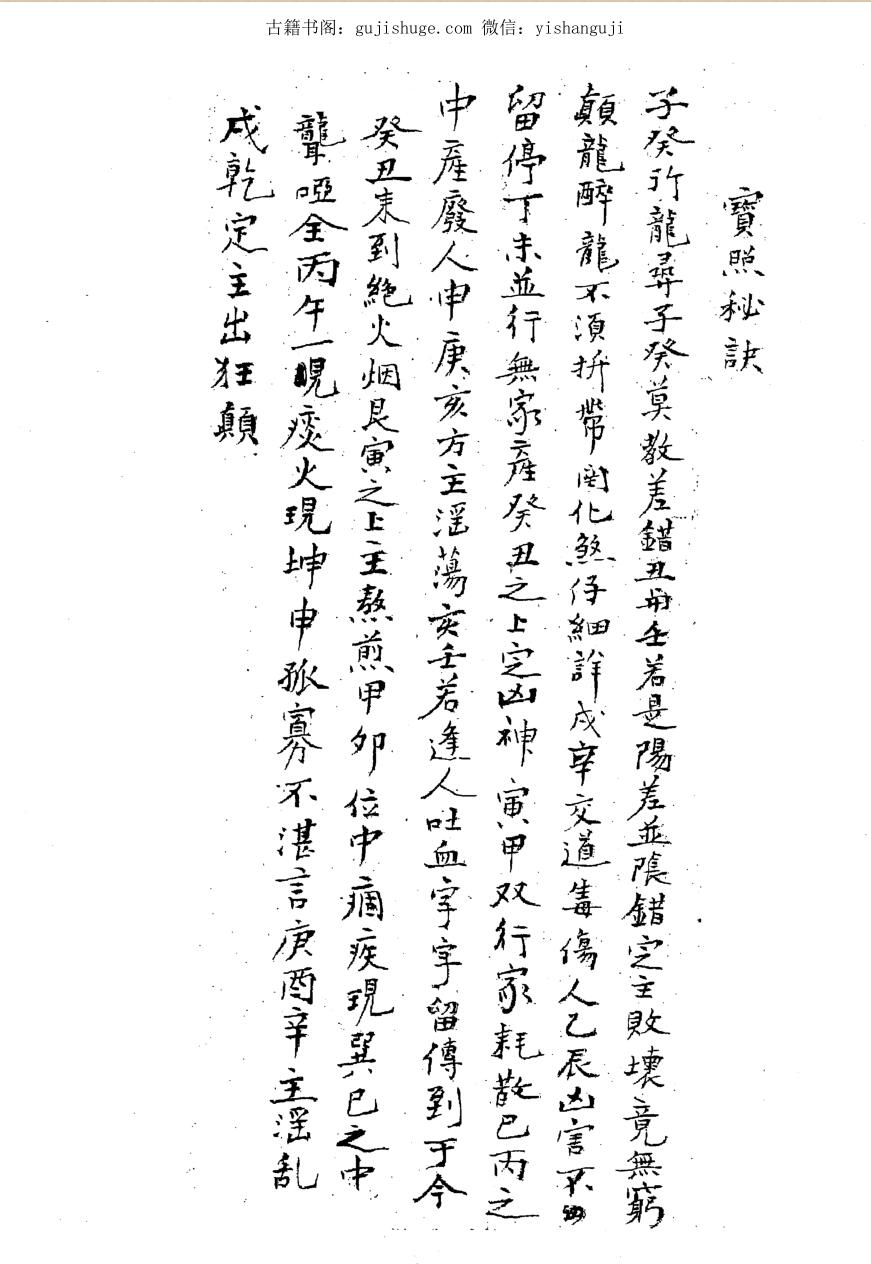 古籍书阁：gujishuge.com 微信：yishanguji
寶照秘訣
子癸行龍尋子癸莫教差錯丑毋壬若是陽差並陰錯定主敗壞竟無窮
顛龍醉龍不須拆帶闲化煞仔細詳戌辛交道毒傷人乙辰凶害不
留停丁未並行無家產癸丑之上定凶神寅甲双行家耗散巳丙之
中產廢人申庚亥方主淫蕩亥壬若逢人吐血字字留傳到于今
癸丑未到絶火烟艮寅之上主熬煎甲卯位中痼疾現巽巳之中
聾啞全丙午一晛痰火現坤申孤寡不湛言庚酉辛主淫乱
戌乾定主出狂顛